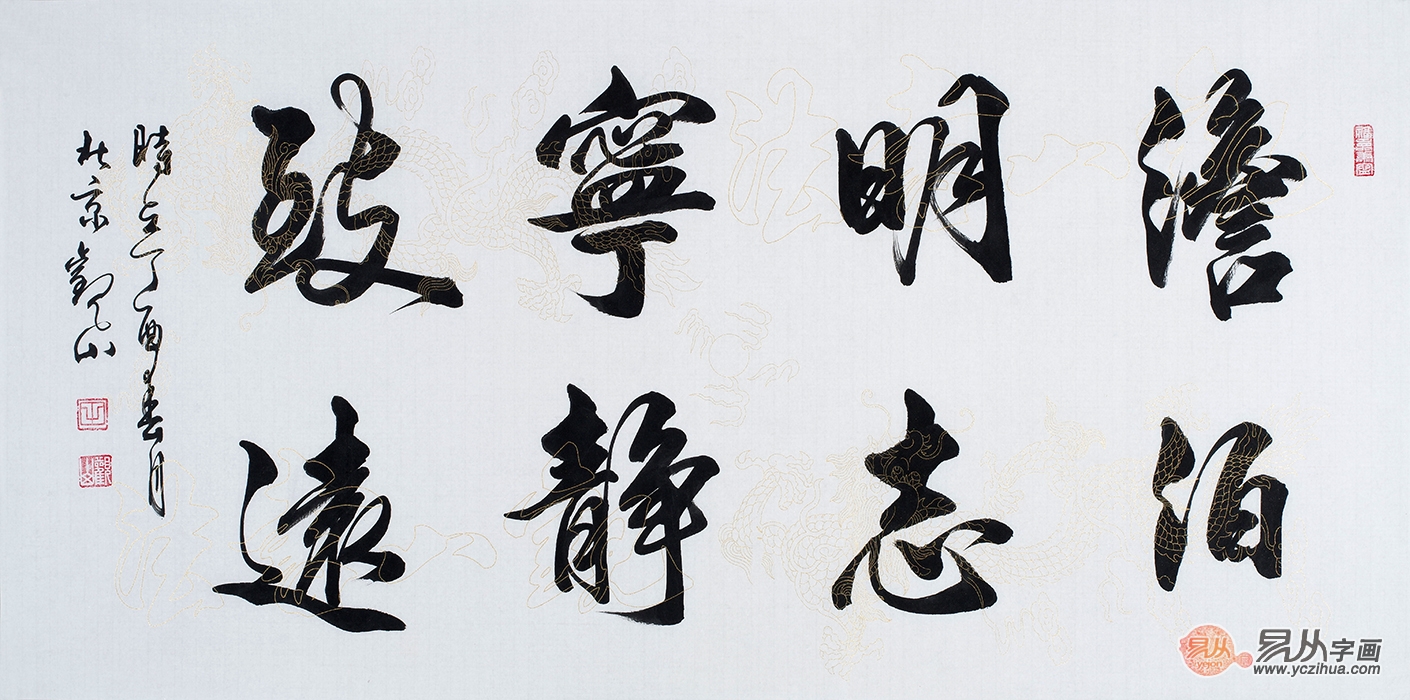 澹泊
明志
寧静
致遠
時在丁酉春月
於北京觀山
易从字画
www.yczihua.com